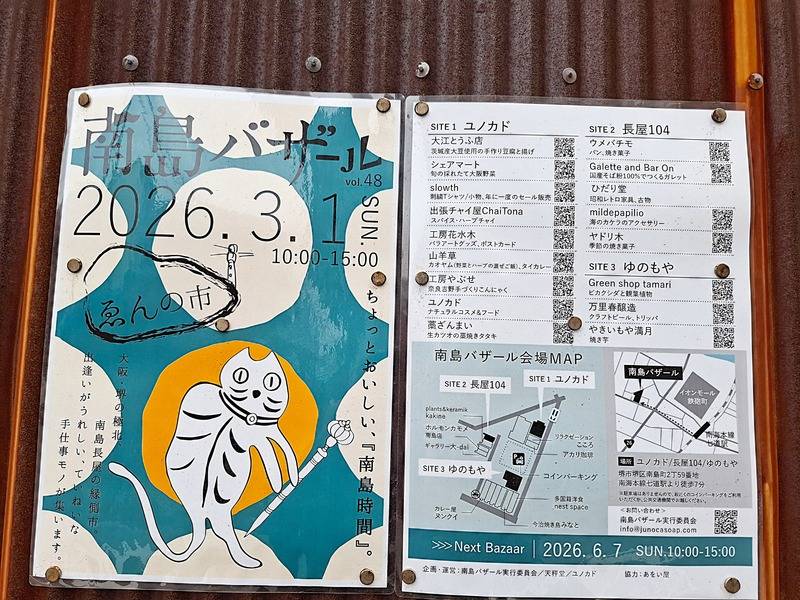 南島バザール
vol.48
2026.3.1
SUN.
10:00-15:00
ゑんの市
ちょっとおいしい、『南島時間』。
大阪・堺の極北
南島長屋の縁側市
出逢いがうれしい、ていねいな
手仕事モノが集います。
SITE 1 ユノカド
大江とうふ店
茨城産大豆使用の手作り豆腐と揚げ
シェアマート
旬の採れたて大阪野菜
slowth
刺繍Tシャツ/小物、年に一度のセール販売
出張チャイ屋ChaiTona
スパイス・ハーブチャイ
工房花水木
バラアートグッズ、ポストカード
山羊草
カオヤム(野菜とハーブの混ぜご飯)、タイカレー
工房やぶせ
奈良吉野手づくりこんにゃく
ユノカド
ナチュラルコスメ&フード
藁ざんまい
生カツオの藁焼きタタキ
SITE 2 長屋104
ウメバチモ
パン、焼き菓子
Galette and Bar On
国産そば粉100%でつくるガレット
ひだり堂
昭和レトロ家具、古物
mildepapilio
海のカケラのアクセサリー
ヤドリ木
季節の焼き菓子
SITE 3 ゆのもや
Green shop tamari
ビカクシダと観葉植物
万里春醸造
クラフトビール、トリッパ
やきいもや満月
焼き芋
南島バザール会場MAP
SITE 2 長屋104
SITE 1 ユノカド
plants&keramik
kakine
ホルモンカモメ
南島店
ギャラリー大-dai
SITE 3 ゆのもや
カレー屋
ヌンクイ
リラクゼーション
こころ
アカリ珈琲
コインパーキング
多国籍雑食
nest space
今治焼き鳥みなと
南島バザール
イオンモール
鉄砲町
南海本線
七道駅
場所 ユノカド/長屋104/ゆのもや
堺市堺区南島町2丁59番地
南海本線七道駅より徒歩7分
※駐車場はありませんので、お近くのコインパーキングをご利用
いただくか、公共交通機関でお越しください。
<お問い合わせ>
南島バザール実行委員会
info@junocasoap.com
>>>Next Bazaar 2026.6.7 SUN.10:00-15:00
企画・運営：南島バザール実行委員会／天秤堂／ユノカド 協力：あをい屋